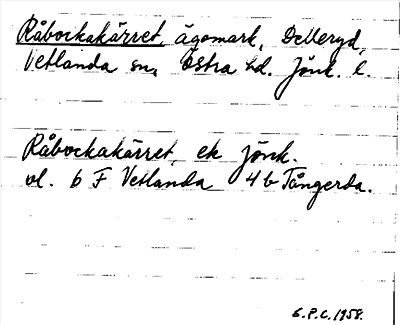 Råbockakärret, ägomark, Delleryd,
Vetlanda sn, Östra hd. Jönk. l.
Råbockakärret, ek Jönk.
vl. 6 F Vetlanda 4 b Tångerda.
G.P.C. 1958.